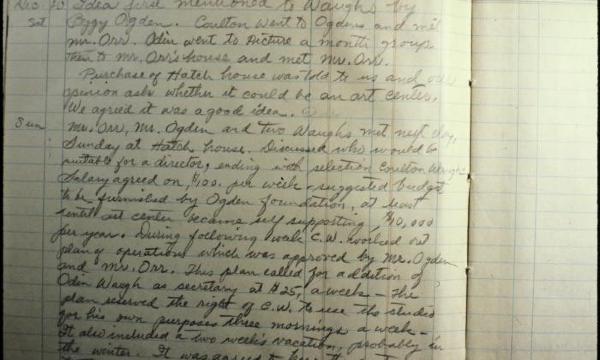 Dec. 10 Idea first mentioned to Waughs by
Sat Peggy Ogden. Coulton went to Ogdens and met
Mr. Orr. Odin went to Picture a month group
then to Mr. Orr's house and met Mr. Orr.
Purchase of Hatch house was told to us and our
opinion asks whether it could be an art center.
We agreed it was a good idea.
Sun Mr. Orr, Mr. Ogden and two Waughs met next day,
Sunday at Hatch house. Discussed who would be
suitable for a director, ending with selection Coulton Waugh.
Salary agreed on, $100. per week - suggested budget
to be furnished by Ogden foundation, at least
until art center became self supporting, $10,000
per year. During following week C.W. worked out
plan of operation which was approved by Mr. Ogden
and Mr. Orr. This plan called for addition of
Odin Waugh as secretary at $25, a week - The
plan reserved the right of C.W. to use the studio
for his own purposes three mornings a week -
It also included a two week's vacation, probably in
the winter. It was agreed to